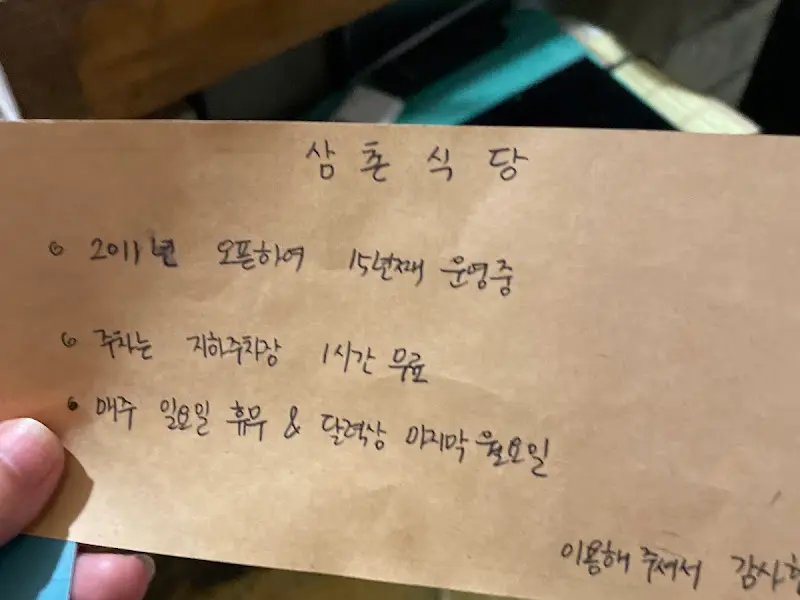 삼촌식당
◦ 2011년 오픈하여 15년째 운영중
◦ 주차는 지하주차장 1시간 무료
◦ 매주 일요일 휴무 & 달력상 마지막 월요일
이용해 주셔서